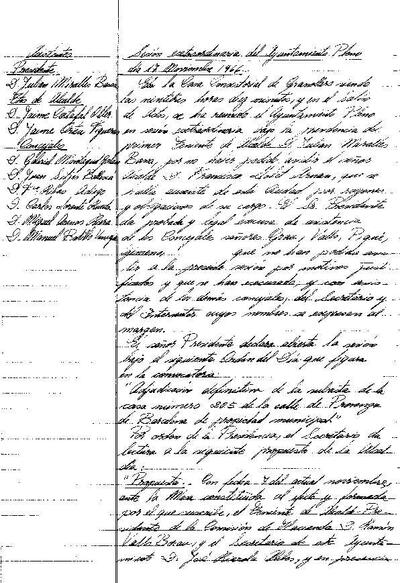 Asistentes
Presidente
D. Julian Miralles Barea
Ttes. de Alcalde
D. Jaime
D. Jaime
Concejales
D. Gabriel
D. Juan
D.
D. Carlos
D. Miguel
D. Manuel
Sesión extraordinaria del Ayuntamiento Pleno
de 17 Noviembre 1966.
En la Casa Consistorial de Granollers siendo
las veintitrés horas diez minutos, y en el salón
de Actos, se ha reunido el Ayuntamiento Pleno
en sesión extraordinaria bajo la presidencia del
primer Teniente de Alcalde D. Julian Miralles
Barea, por no haber podido asistir el señor
Alcalde D. Francisco Llobet Arnan, que se
halla ausente de esta ciudad por razones
y obligaciones de su cargo. A la Presidencia
ha probado y legal excusa de asistencia
de los Concejales señores Grau, Valls, Piqué,
que no han podido asis-
tir a la presente sesión por motivos justi-
ficados y que se han excusado, y con asis-
tencia de los demás concejales, del Secretario y
del Interventor cuyos nombres se expresan al
margen.
El señor Presidente declara abierta la sesión
bajo el siguiente Orden del Día que figura
en la convocatoria
"Adjudicación definitiva de la subasta de la
casa número 205 de la calle de Provenza
de Barcelona de propiedad municipal".
Por orden de la Presidencia, el Secretario da
lectura a la siguiente propuesta de la Alcal-
día:
"Propuesta.- Con fecha 7 del actual noviembre,
ante la Mesa constituida al efecto y formada
por el que suscribe, el Teniente de Alcalde Pre-
sidente de la Comisión de Hacienda D. Ramón
Valls Borau, y el Secretario de este Ayunta-
miento D. José y en presencia